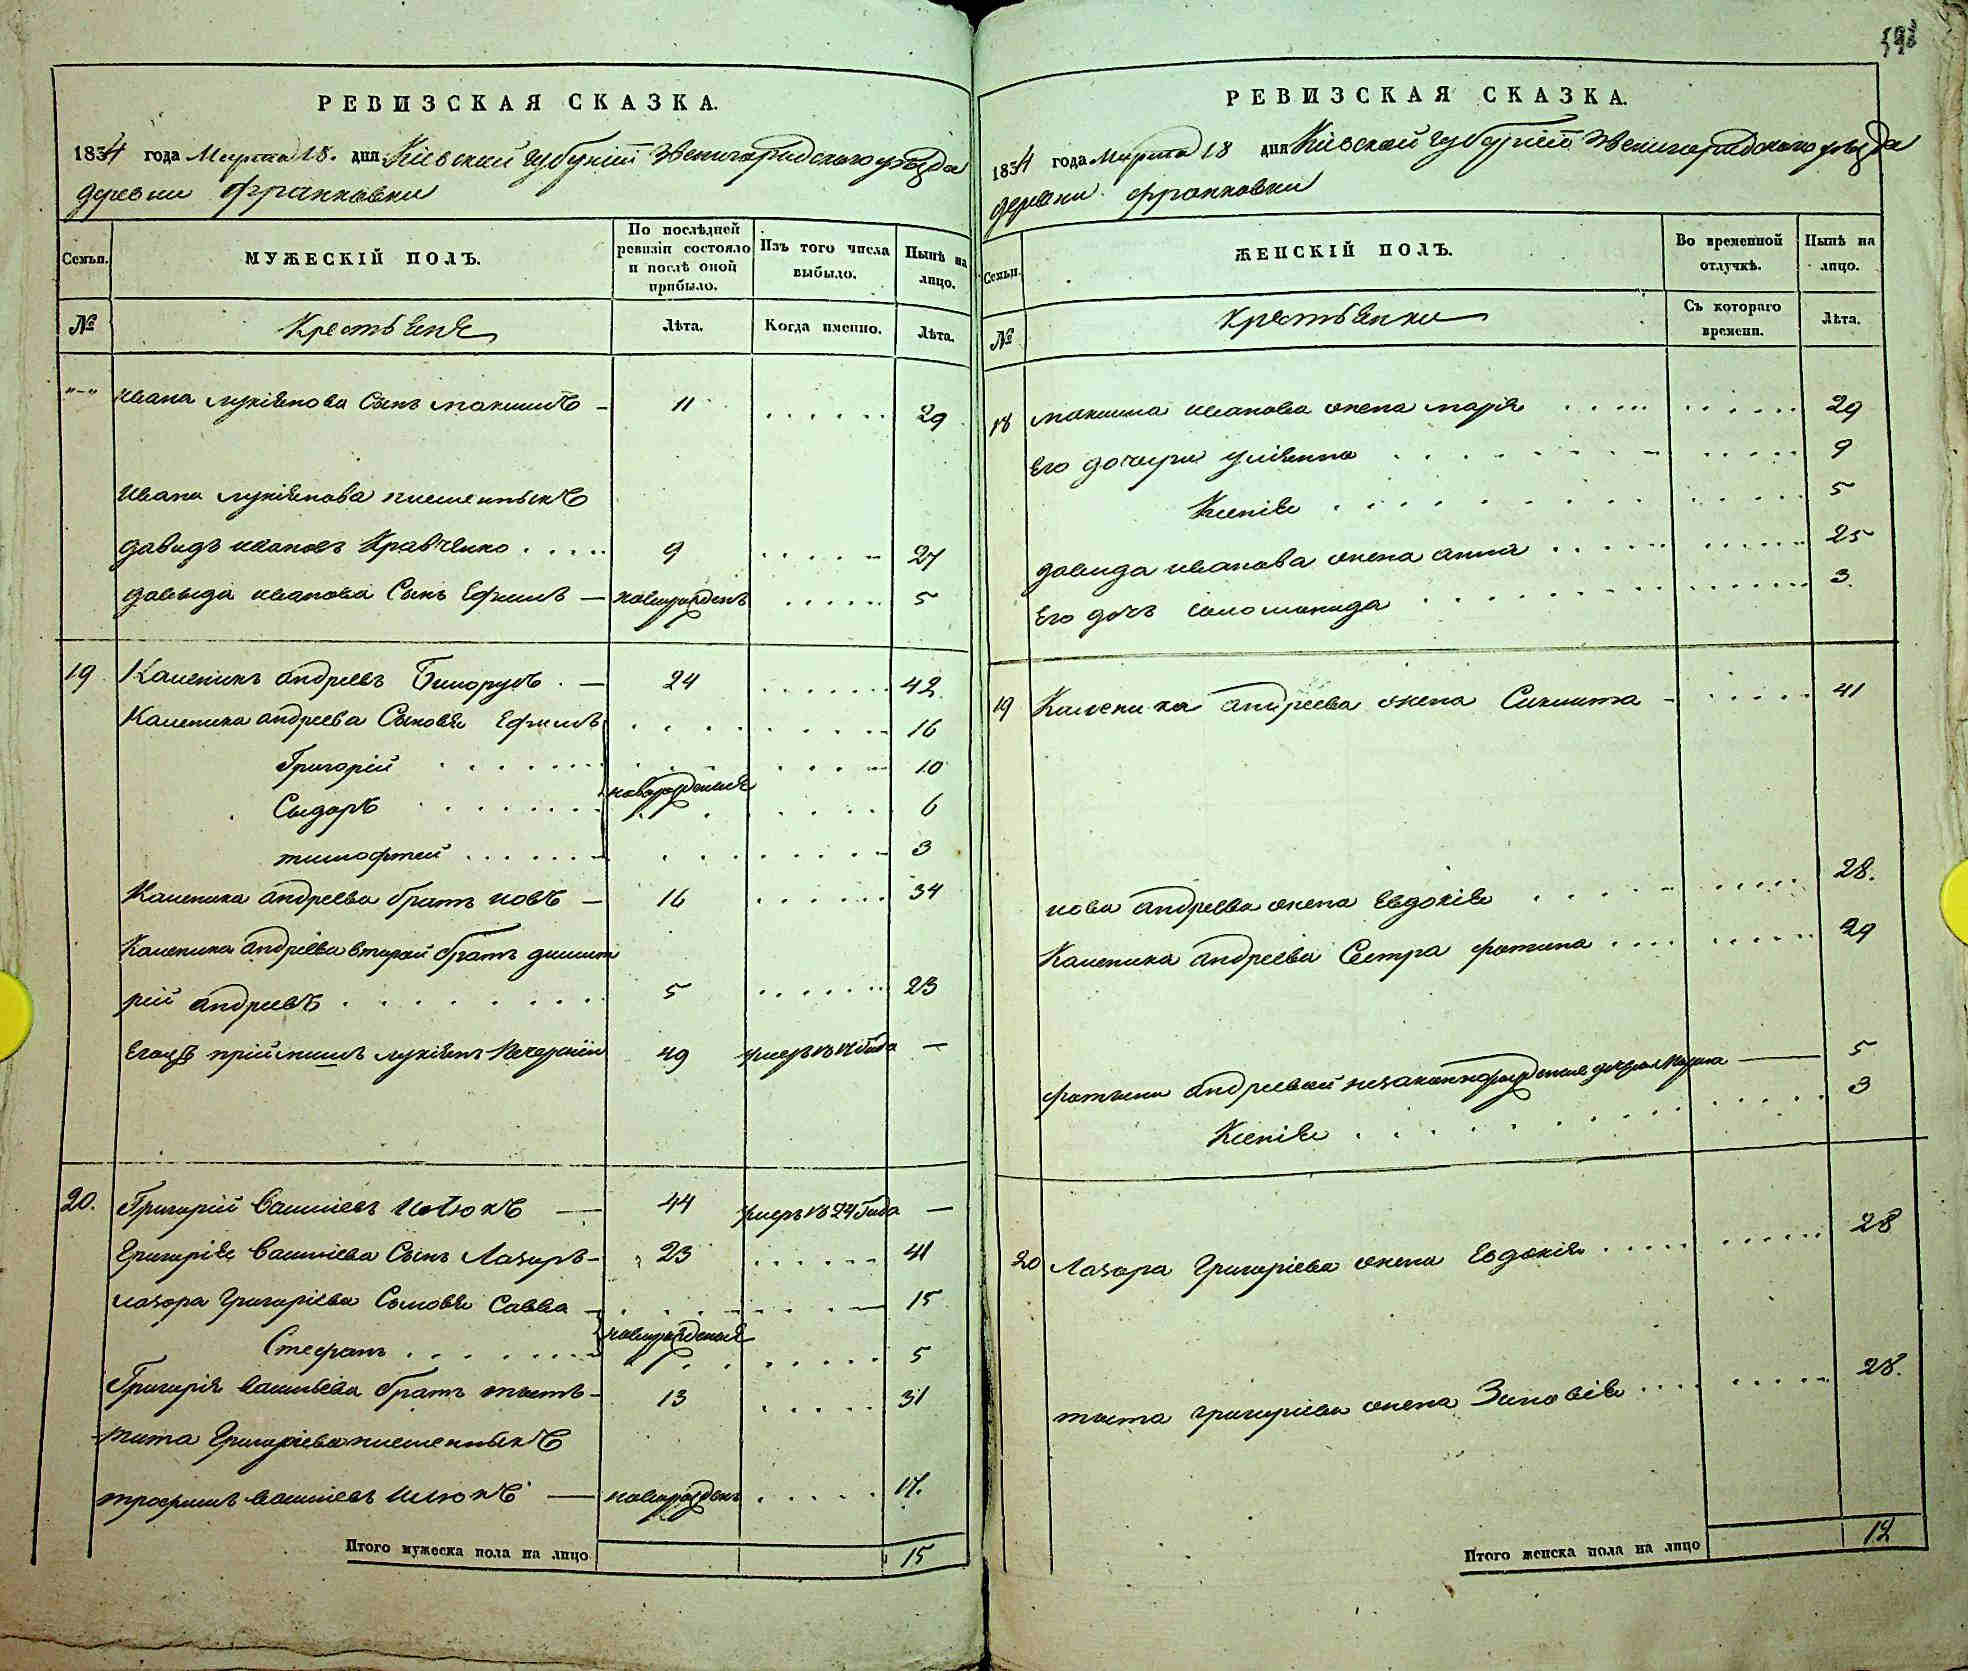 РЕВИЗСКАЯ СКАЗКА.
1834 года Марта 18. дня Кіевской губерніи Звенигородского уѣзда
деревни Франковки
Семьи. МУЖЕСКІЙ ПОЛЪ. По послѣдней ревизіи состояло и послѣ оной прибыло. Изъ того числа выбыло. Нынѣ на лицо.
№ Крестьяне Лѣта. Когда именно. Лѣта.
"–" Ивана Лукіянова Сынъ Максимъ – 11 29
Ивана Лукіянова племенныкъ
Давидъ Ивановъ Кравченко 9 27
Давыда Иванова Сынъ Ефимъ – новорожденъ 5
19 Каленикъ Андреевъ Билорусъ – 24 42
Каленика Андреева Сыновья Ефимъ 16
Григорій 10
новорожденые
Сыдоръ 6
Тимофтей 3
Каленика Андреева братъ Иовъ – 16 34
Каленика Андреева вторый братъ Димит
рій Андреевъ 5 23
Егожъ пріймышъ Лукіянъ 49 умеръ въ Года –
20. Григорій Василіевъ – 44 умеръ въ 24 Года –
Григорія Василіева Сынъ Лазоръ – 23 41
Лазора Григоріева Сыновья Савва 15
новорожденые
Стефанъ 5
Григорія Василіева братъ Тытъ – 13 31
Тита Григоріева племенныкъ
Трофимъ Василіевъ – новорожденъ 17.
Итого мужеска пола на лицо 15
РЕВИЗСКАЯ СКАЗКА.
1834 года Марта 18 дня Кіевской губерніи Звенигородского уѣзда
деревни Франковки
Семьи. ЖЕНСКІЙ ПОЛЪ. Во временной отлучкѣ. Нынѣ на лицо.
№ Крестьянки Съ котораго времени. Лѣта.
18 Максима Иванова жена Марія 29
Его дочери Уліянна 9
Ксенія 5
Давида Иванова жена Анна 25
Его дочь Соломонида 3.
19 Каленика Андреева жена 41
Иова Андреева жена Евдокія 28.
Каленика Андреева Сестра Фотина 29
Фотыни Андреевой незаконнорожденые дочери Марина 5
Ксенія 3
20 Лазора Григоріева жена Евдокія 28
Тыта Григоріева жена Зиновія 28.
Итого женска пола на лицо 12